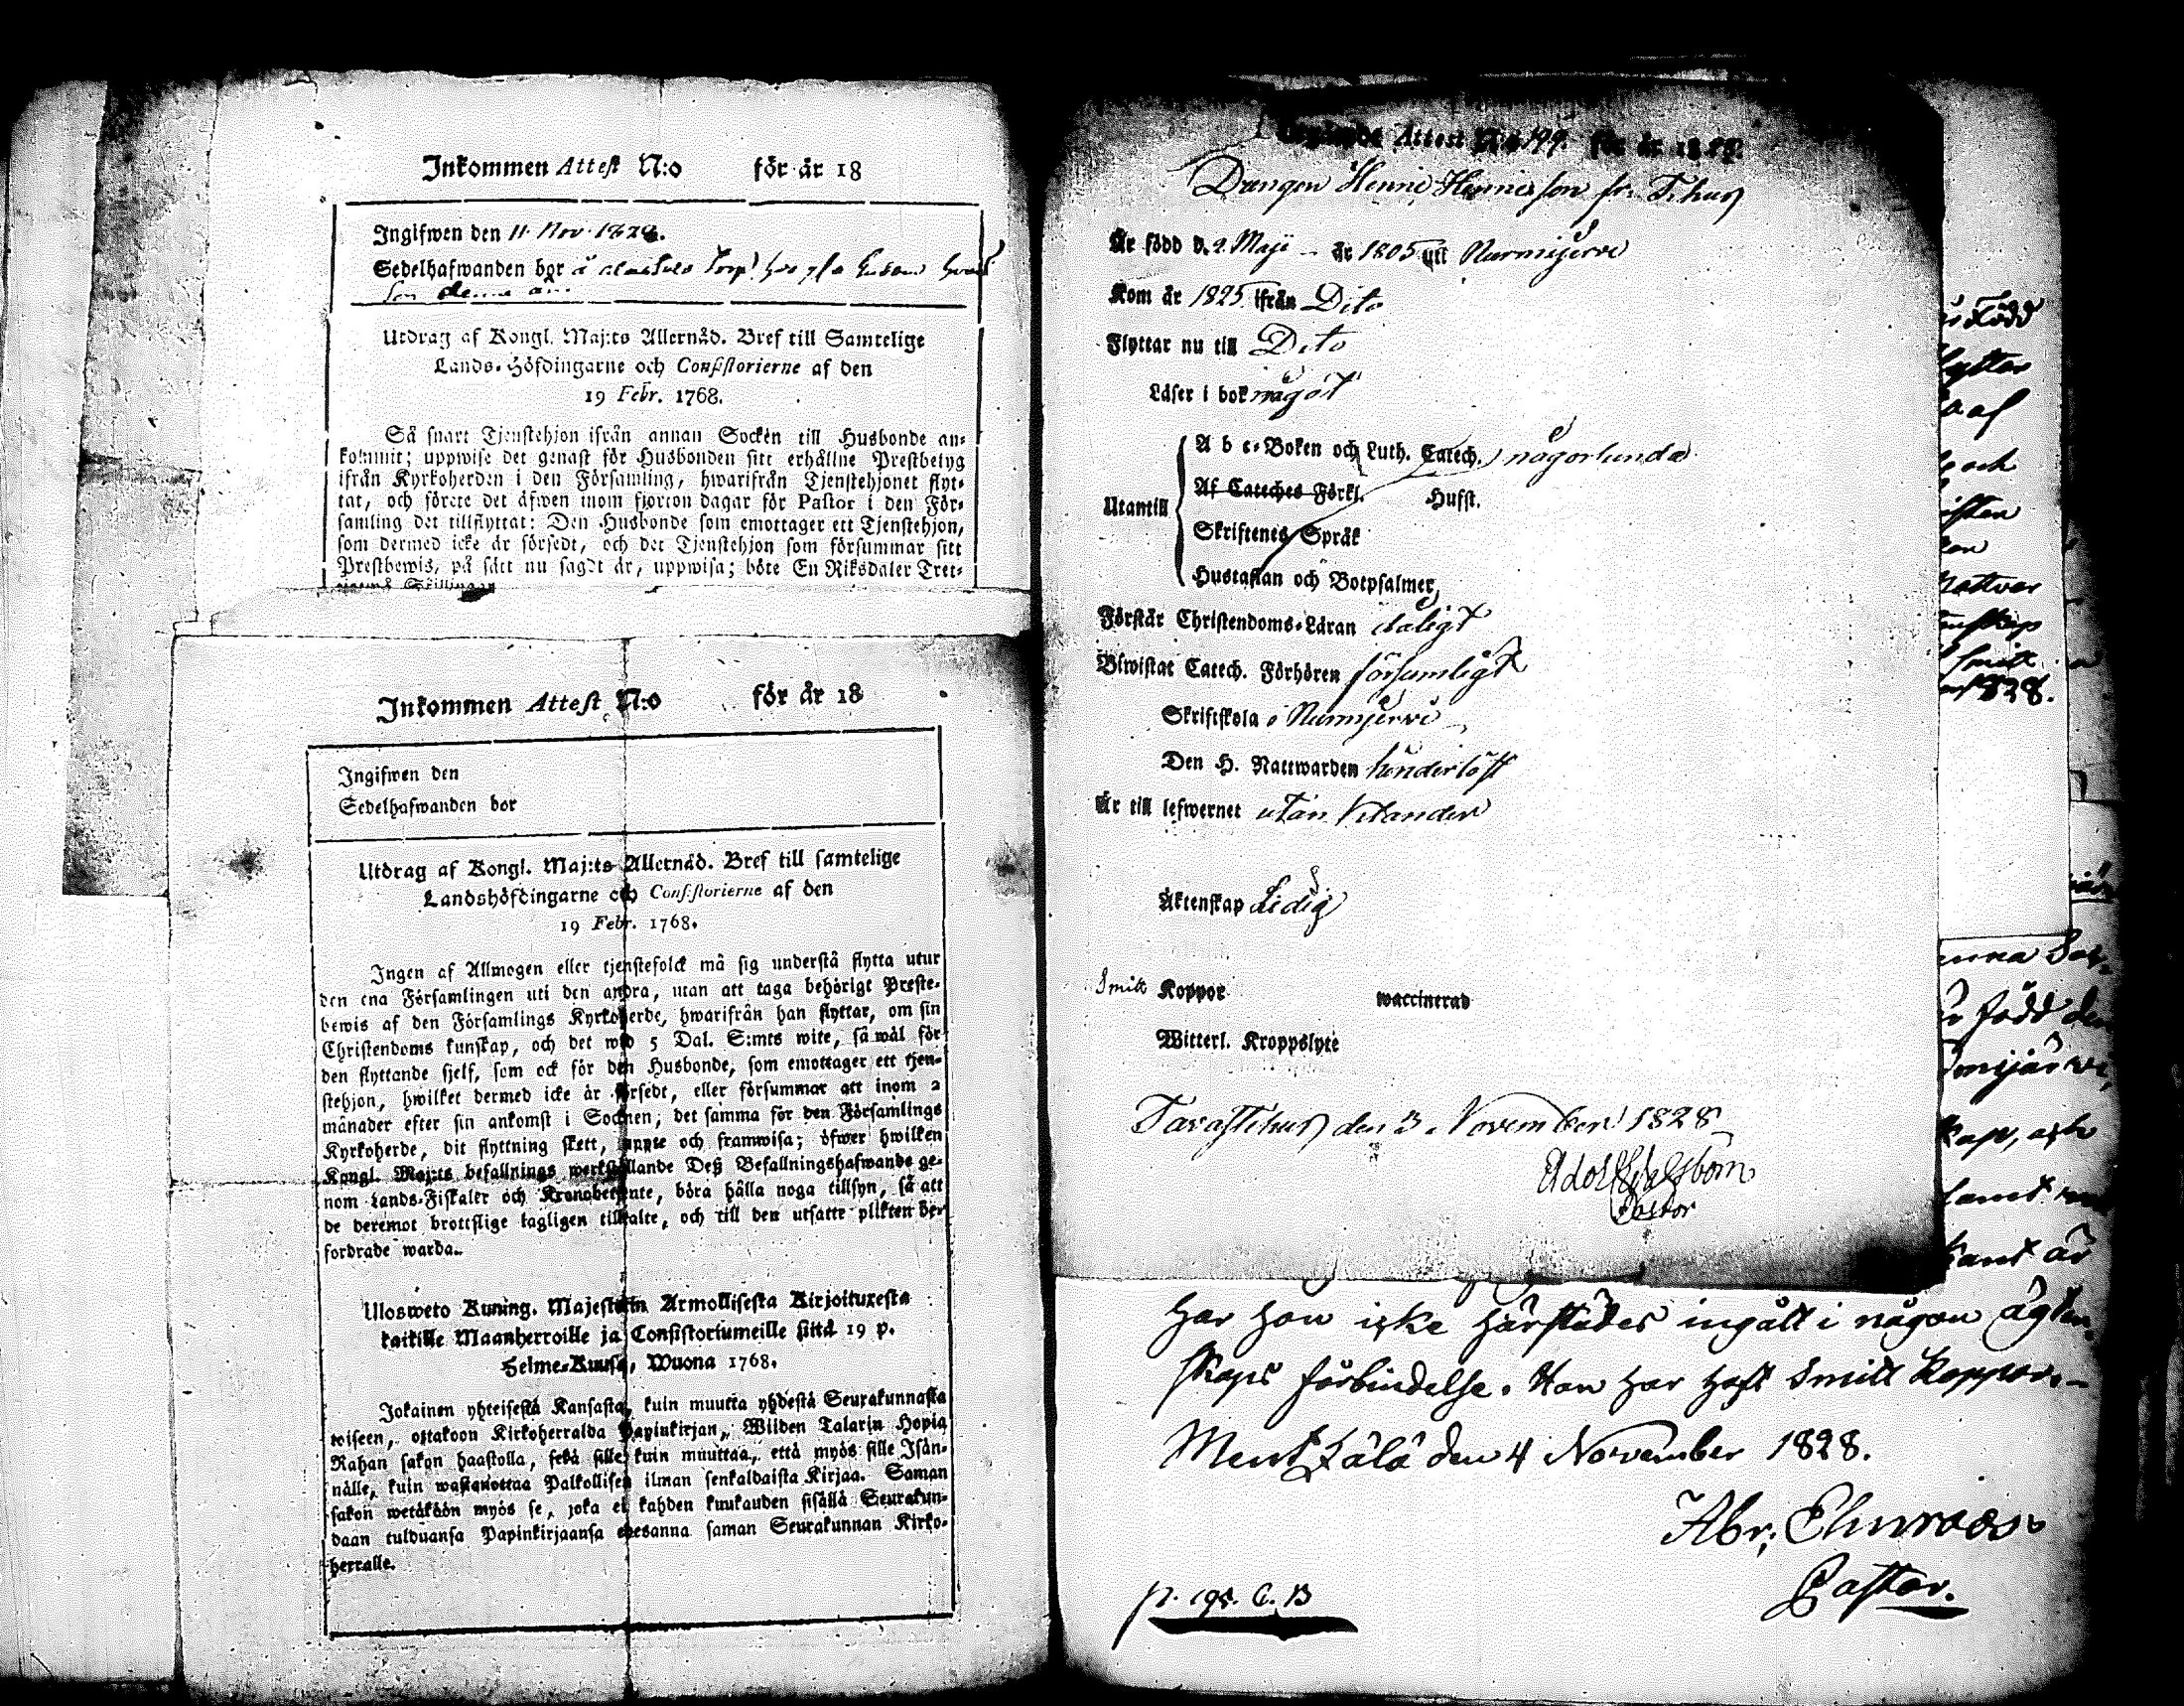 Inkommen Attest N:o för år 18
Ingifwen den 11 Nov. 1828.
Sedelhafwanden bor å
son denne
Utdrag af Kongl. Maj:ts Allernåd. Bref till Samtelige
Lands-Höfdingarne och Consistorierne af den
19 Febr. 1768.
Så snart Tjenstehjon ifrån annan Socken till Husbonde an-
kommit; uppwise det genast för Husbonden sitt erhållne Prestbetyg
ifrån Kyrkoherden i den Församling, hwarifrån Tjenstehjonet flyt-
tat, och förete det äfwen inom fjorton dagar för Pastor i den För-
samling det tillflyttat: Den Husbonde som emottager ett Tjenstehjon,
som dermed icke är försedt, och det Tjenstehjon som försummar sitt
Prestbewis, på sätt nu sagdt är, uppwisa; böte En Riksdaler Tret-
Skillingar
Inkommen Attest N:o för år 18
Ingifwen den
Sedelhafwanden bor
Utdrag af Kongl. Maj:ts Allernåd. Bref till samtelige
Landshöfdingarne och Consistorierne af den
19 Febr. 1768.
Ingen af Allmogen eller tjenstefolck må sig understå flytta utur
den ena Församlingen uti den andra, utan att taga behörigt Preste-
bewis af den Församlings Kyrkoherde, hwarifrån han flyttar, om sin
Christendoms kunskap, och det wid 5 Dal. S:mts wite, så wäl för
den flyttande sjelf, som ock för den Husbonde, som emottager ett tjen-
stehjon, hwilket dermed icke är försedt, eller försummar att inom 2
månader efter sin ankomst i Socknen, det samma för den Församlings
Kyrkoherde, dit flyttning skett, uppte och framwisa; öfwer hwilken
Kongl. Maj:ts befallnings werkställande Deß Befallningshafwande ge-
nom Lands-Fiskaler och Kronobetjente, böra hålla noga tillsyn, så att
de deremot brottslige lagligen tilltalte, och till den utsatte plikten bör
fordrade warda.
Ulosweto Kuning. Majestetin Armollisesta Kirjoituxesta
kaikille Maanherroille ja Consistoriumeille siitä 19 p.
Helme-Kuusa, Wuona 1768.
Jokainen yhteisestä Kansasta, kuin muutta yhdestä Seurakunnasta
toiseen, ottakoon Kirkoherralda Papinkirjan, Wiiden Talarin Hopia
Rahan sakon haastolla, sekä sille kuin muuttaa, että myös sille Isän-
nälle, kuin wastanottaa Palkollisen ilman senkaldaista Kirjaa. Saman
sakon wetäkään myös se, joka ei kahden kuukauden sisällä Seurakun-
daan tulduansa Papinkirjaansa edesanna saman Seurakunnan Kirko-
herralle.
Attest N:o 199. för år 18
Drengen Henric Henricsson fr. T:hus
Är född d. 2 Maji år 1805 uti Nurmijervi
Kom år 1825 ifrån Dito
Flyttar nu till Dito
Läser i bok något
Utantill
A b c-Boken och Luth. Catech. någorlunda
Af Cateches Förkl. Husst.
Skriftenes Språk
Hustaflan och Botpsalmer
Förstår Christendoms-Läran dåligt
Biwistat Catech. Förhören försumligt
Skriftskola i Nurmijerwi
Den H. Nattwarden hinderlöst
Är till lefwernet utan klander
Äktenskap Ledig
Smitt Koppor waccinerad
Witterl. Kroppslyte
Tavastehus den 3 November 1828
Pastor
Har han icke härstädes ingått i någon ägten-
skaps förbindelse. Han har haft Smitt koppor. –
Mentzälä den 4 November 1828.
Abr.
Pastor.
född
och
Nattvar
828.
född den
kap, och
samt
kant är